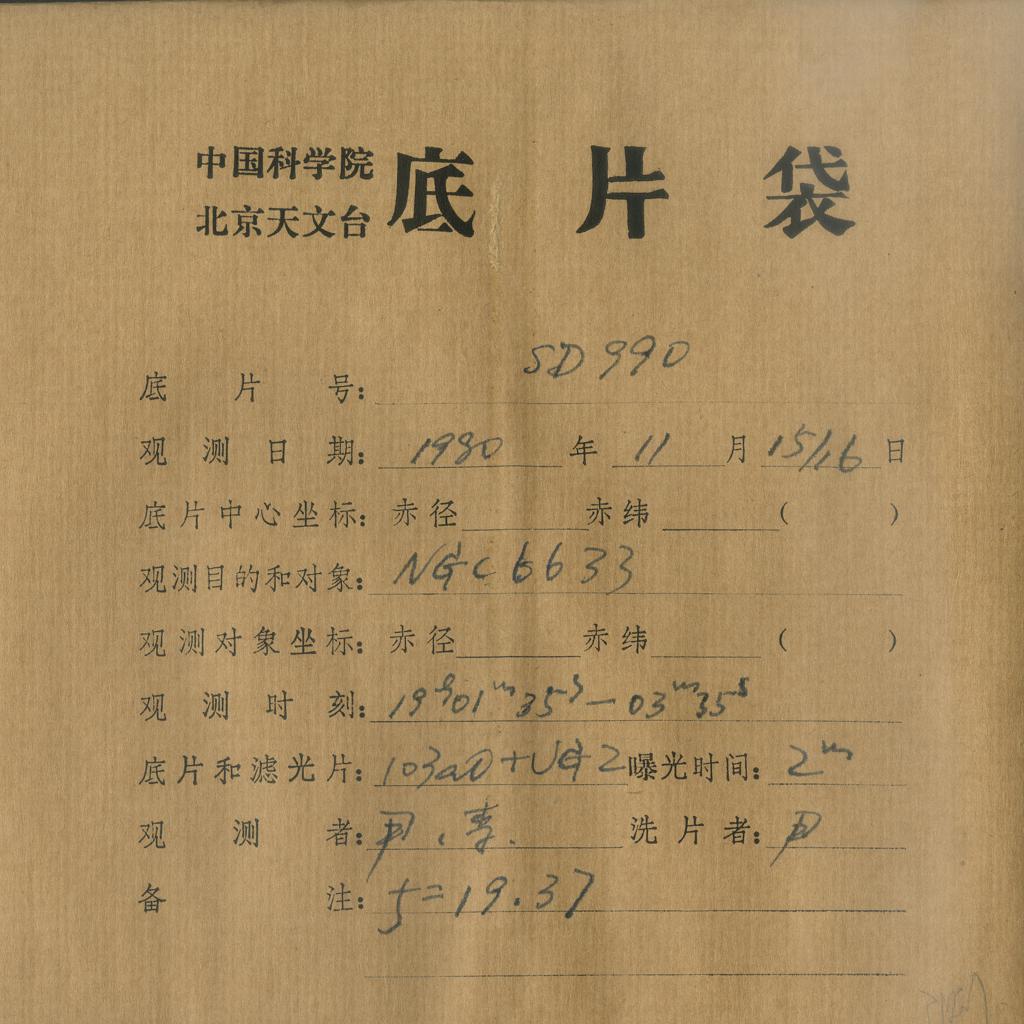 中国科学院
北京天文台
底片袋
底片号: SD990
观测日期: 1980年11月15/16日
底片中心坐标: 赤径 赤纬 ( )
观测目的和对象: NGC6633
观测对象坐标: 赤径 赤纬 ( )
观测时刻: 19h01m35s—03m35s
底片和滤光片: 103aD+UG2 曝光时间: 2m
观测者: 尹、李. 洗片者: 尹
备注: 5=19.37